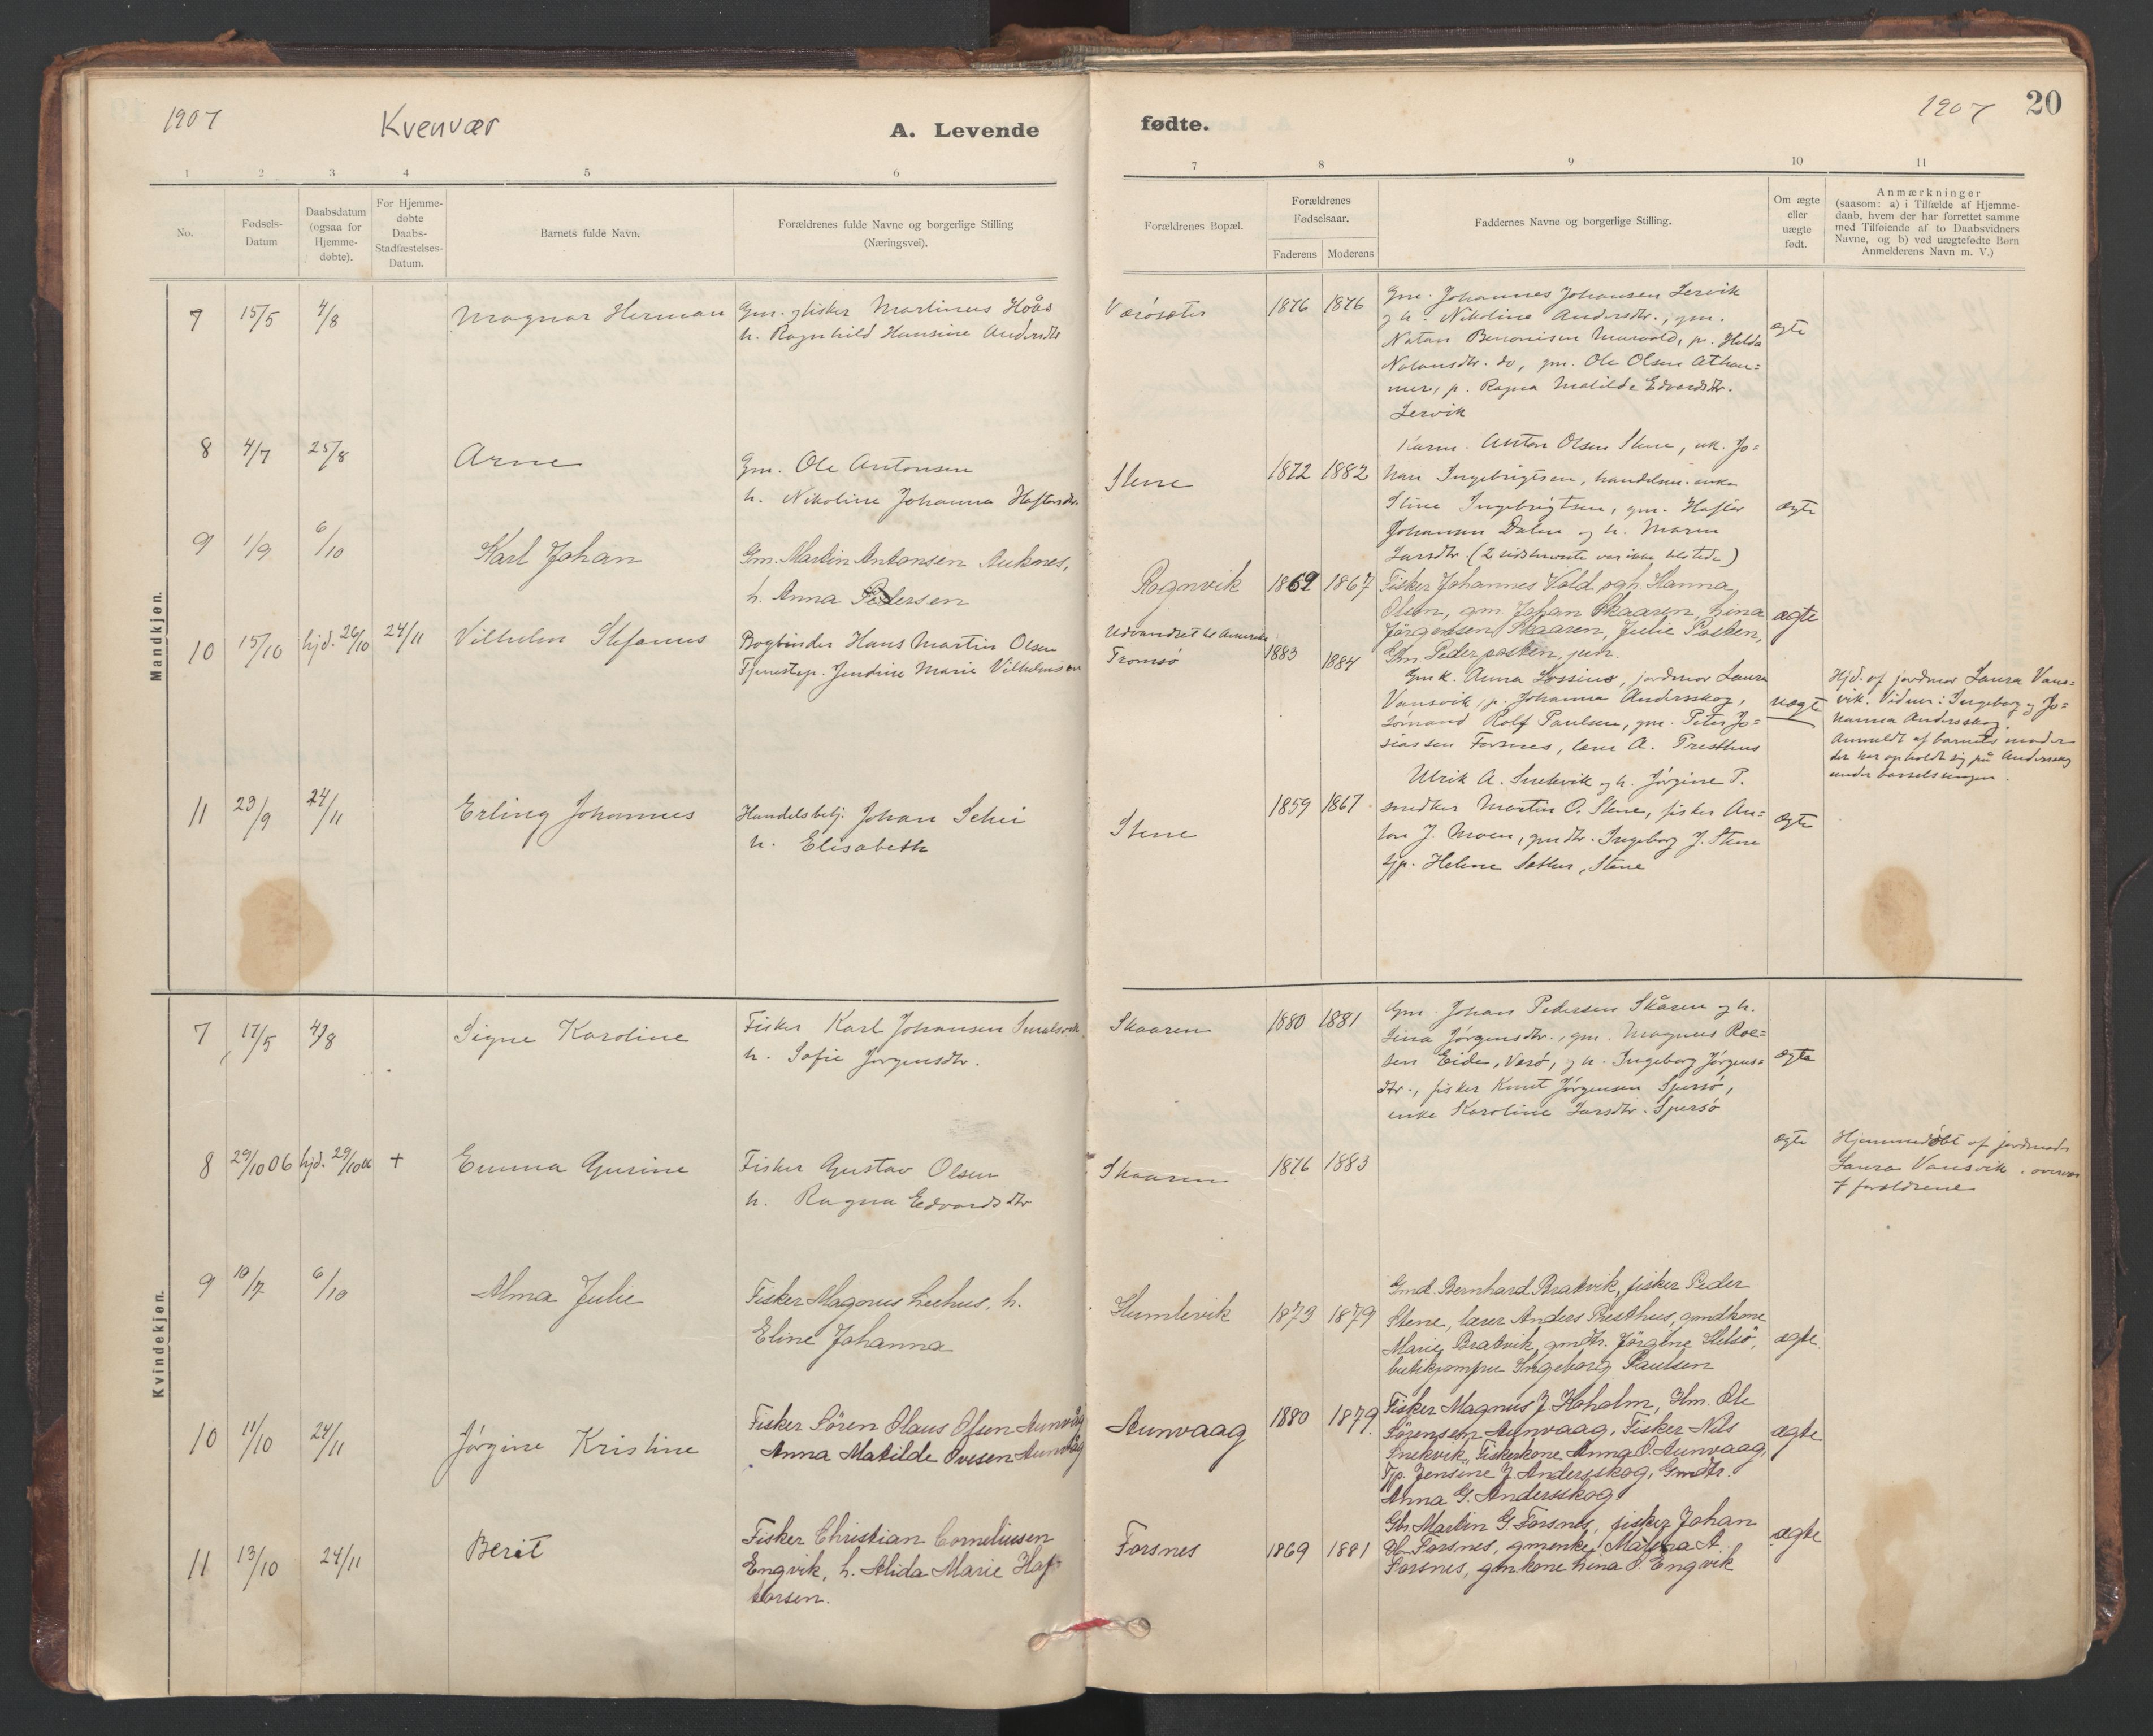 1907 Kvenvær A. Levende
1 2 3 4 5 6
No. Fødsels-Datum Daabsdatum (ogsaa for Hjemme-døbte). For Hjemme-døbte Daabs-Stadfæstelses-Datum. Barnets fulde Navn. Forældrenes fulde Navne og borgerlige Stilling (Næringsvei).
Mandkjøn.
7 15/5 4/8 Magnar Herman Gm. og fisker Martinus Hååś
h. Ragnhild Hansine Andersdtr
8 4/7 25/8 Arne Gm. Ole Antonsen
h. Nikoline Johanna Haftorsdtr.
9 1/9 6/10 Karl Johan Gm. Martin Antonsen Auknes,
h. Anna Pedersen
10 15/10 hjd. 26/10 24/11 Vilhelm Stefanus Bogbinder Hans Martin Olsen
Tjenestep. Jendine Marie Vilhelmsen
11 23/9 24/11 Erling Johannes Handelsbetj. Johan Schei
h. Elisabeth
Kvindekjøn.
7 17/5 4/8 Signe Karoline Fisker Karl Johansen Smalsvik
h. Sofie Jørgensdtr.
8 29/10 06 hjd. 29/10 06 + Emma Gurine Fisker Gustav Olsen
h. Ragna Edvardsdtr
9 10/7 6/10 Alma Julie Fisker Magnus Leehus, h.
Eline Johanna
10 11/10 24/11 Jørgine Kristine Fisker Sören Olaus Olsen Aunvåg
Anna Matilde Ovesen Aunvåg
11 13/10 24/11 Berit Fisker Christian Corneliusen
Engvik, h. Alida Marie Haf-
torsen.
fødte. 1907 20
7 8 9 10 11
Forældrenes Bopæl. Forældrenes Fødselsaar. Faderens Moderens Faddernes Navne og borgerlige Stilling. Om ægte eller uægte født.
Anmærkninger
(saasom: a) i Tilfælde af Hjemme-
daab, hvem der har forrettet samme
med Tilføiende af to Daabsvidners
Navne, og b) ved uægtefødte Børn
Anmelderens Navn m. V.)
Værøsæter 1876 1876 Gm. Johannes Johansen Lervik
og h. Nikoline Andersdtr., gm.
Natan Benonisen Murvold, p. Hilda
Natansdtr. do, gm. Ole Olsen Atham=
mer, p. Ragna Matilde Edvardsdtr.
Lervik
ægte
Stene 1872 1882 Kaarm. Anton Olsen Stene, uk. Jo=
han Ingebrigtsen, handelsm. enke
Stine Ingebrigtsen, gm. Haftor
Johansen Dalen og h. Maren
Larsdtr. (2 sidstnævnte var ikke tilstede)
ægte
Ragnvik 1869 1867 Fisker Johannes Vold og h. Hanna
Olsen, gm Johan Skaaren, Lina
Jørgensen Skaaren, Julie Pasken,
Gm Peder Pasken, jun.
ægte
Udvandret til Amerika
Tromsø 1883 1884 Gmk. Anna Lossius, jordmor Laura
Vansvik, p. Johanna Andersskog,
sømand Rolf Paulsen, gm. Peter Jo=
siassen Forsnes, lærer A. Presthus
uægte
Hjd. af jordmor Laura Vans=
vik. Vidner: Ingeborg og Jo=
hanna Andersskog.
Anmeldt af barnets moder
der har opholdt sig på Andersskog
under barselsengen.
Stene 1859 1867 Ulrik A. Snekvik og h. Jørgine P.
snedker Martin O. Stene, fisker An=
ton J. Moen, gmdtr. Ingeborg J. Stene
tjp. Helene Sæther, Stene
ægte
Skaaren 1880 1881 Gm. Johan Pedersen Skåren og h.
Lina Jørgensdtr., gm. Magnus Roe=
sen Eide, Værø, og h. Ingeborg Jørgens=
dtr., fisker Knut Jørgensen Spersø,
enke Karoline Larsdtr. Spersø
ægte
Skaaren 1876 1883 ægte
Hjemmedøbt af jordmoder
Laura Vansvik, overvær
af forældrene
Humlevik 1873 1879 Gmd. Bernhard Bratvik, fisker Peder
Stene, lærer Anders Presthus, gmdkone
Marie Bratvik, gmdtr. Jörgine Helsö,
butikjomfru Ingeborg Paulsen
ægte.
Aunvaag 1880 1879. Fisker Magnus J. Haholm, Gm. Ole
Sørensen Aunvaag, Fisker Nils
Snekvik, Fiskerkone Anna O. Aunvaag,
Tjp. Jensine J. Andersskog, Gmdtr.
Anna G. Andersskog
ægte
Forsnes 1869 1881 Gbr. Martin G. Forsnes, fisker Johan
H. Forsnes, gmenke Malena A.
Forsnes, gmkone Lina O. Engvik
ægte